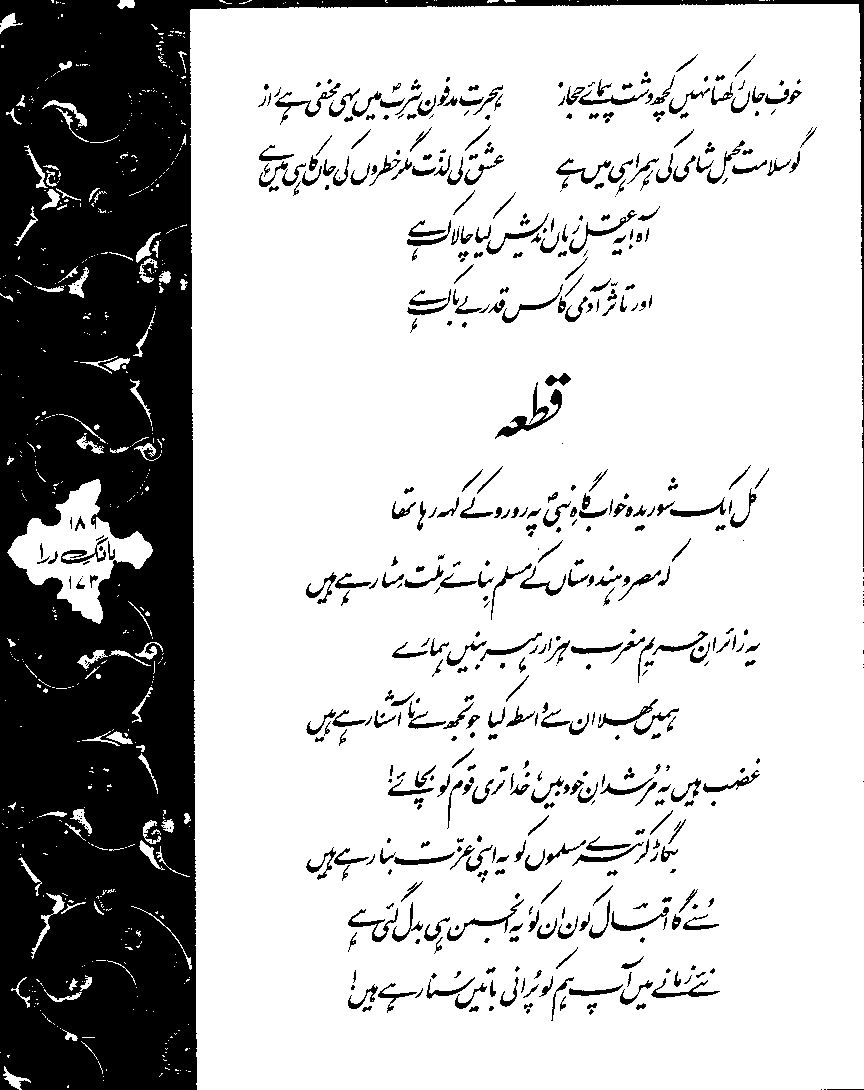 خوفِ جاں رکھتا نہیں کچھ دشت پیمائے حجاز ہجرتِ مدفونِ یثربؐ میں یہی مخفی ہے راز
گو سلامت محملِ شامی کی ہمراہی میں ہے عشق کی لذّت مگر خطروں کی جاں کاہی میں ہے
آہ! یہ عقلِ زیاں اندیش کیا چالاک ہے
اور تاثّر آدمی کا کس قدر بے باک ہے
قطعہ
کل ایک شوریدہ خواب گاہِ نبیؐ پہ رو رو کے کہہ رہا تھا
کہ مصر و ہندوستاں کے مسلم بِنائے ملّت مِٹا رہے ہیں
یہ زائرانِ حریمِ مغرب ہزار رہبر بنیں ہمارے
ہمیں بھلا ان سے واسطہ کیا جو تجھ سے ناآشنا رہے ہیں
غضب ہیں یہ 'مُرشدانِ خودبیں'، خُدا تری قوم کو بچائے!
بگاڑ کر تیرے مسلموں کو یہ اپنی عزّت بنا رہے ہیں
سُنے گا اقبالؔ کون ان کو، یہ انجمن ہی بدل گئی ہے
نئے زمانے میں آپ ہم کو پُرانی باتیں سُنا رہے ہیں!
۱۸۹
بانگِ درا
۱۷۳